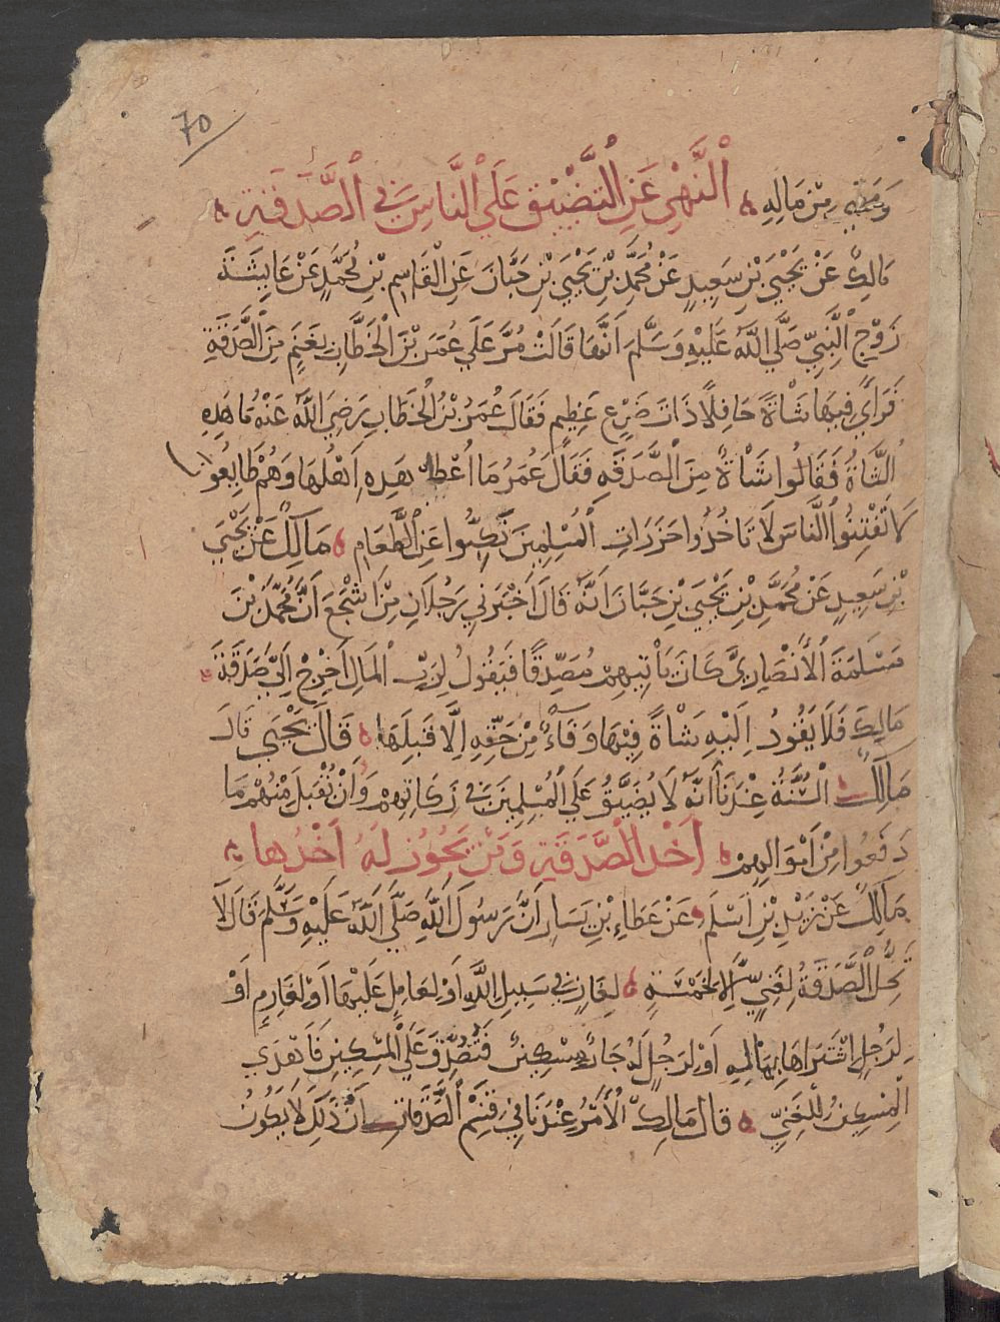 70
وَمَنِّهِ مِنْ مَالِهِ ۞ اَلنَّهْيِ عَنِ التَّضْيِيقِ عَلَي النَّاسِ فِي الصَّدَقَةِ ۞
مَالِكٌ عَنْ يَحْيَي بْنِ سَعِيدٍ عَنْ مُحَمَّدِ بْنِ يَحْيَي بْنِ حَبَّانَ عَنِ الْقَاسِمِ بْنِ مُحَمَّدٍ عَنْ عَايِشَةَ
زَوْجِ النَّبِيِّ صَلَّي اللَّهُ عَلَيْهِ وَسَلَّمَ اَنَّهَا قَالَتْ مُرَّ عَلَي عُمَرَ بْنِ الْخَطَّابِ بِغَنَمٍ مِنَ الصَّدَقَةِ
فَرَاَي فِيهَا شَاةً حَافِلًا ذَاتَ ضَرْعٍ عَظِيمٍ فَقَالَ عُمَرُ بْنُ الْخَطَّابِ رَضِيَ اللَّهُ عَنْهُ مَا هَذِهِ
الشَّاةُ فَقَالُوا شَاةٌ مِنَ الصَّدَقَةِ فَقَالَ عُمَرُ مَا اَعْطَا هَذِهِ اَهْلُهَا وَهُمْ طَايِعُونَ
لَا تَفْتِنُوا النَّاسَ لَا تَاخُذُوا حَزَرَاتِ الْمُسْلِمِينَ نَكِّبُوا عَنِ الطَّعَامِ ۞ مَالِكٌ عَنْ يَحْيَي
بْنِ سَعِيدٍ عَنْ مُحَمَّدِ بْنِ يَحْيَي بْنِ حَبَّانَ اَنَّهُ قَالَ اَخْبَرَنِي رَجُلَانِ مِنْ اَشْجَعَ اَنَّ مُحَمَّدَ بْنَ
مَسْلَمَةَ الْاَنْصَارِيَّ كَانَ يَاْتِيهِمْ مُصَدِّقًا فَيَقُولُ لِرَبِّ الْمَالِ اَخْرِجْ اِلَيَّ صَدَقَةَ
مَالِكَ فَلَا يَقُودُ اِلَيْهِ شَاةً فِيهَا وَفَاءٌ مِنْ حَقِّهِ اِلَّا قَبِلَهَا ۞ قَالَ يَحْيَي قَالَ
مَالِكٌ السُّنَّةُ عِنْدَنَا اَنَّهُ لَا يُضَيَّقُ عَلَي الْمُسْلِمِينَ فِي زَكَاتِهِمْ وَاَنْ يُقْبَلَ مِنْهُمْ مَا
دَفَعُوا مِنْ اَمْوَالِهِمْ ۞ اَخْذُ الصَّدَقَةِ وَمَنْ يَجُوزُ لَهُ اَخْذُهَا ۞
مَالِكٌ عَنْ زَيْدِ بْنِ اَسْلَمَ عَنْ عَطَاءِ بْنِ يَسَارٍ اَنَّ رَسُولَ اللَّهِ صَلَّي اللَّهُ عَلَيْهِ وَسَلَّمَ قَالَ لَا
تَحِلُّ الصَّدَقَةُ لِغَنِيٍّ اِلَّا لِخَمْسَةٍ ۞ لِغَازٍ فِي سَبِيلِ اللَّهِ اَوْ لِعَامِلٍ عَلَيْهَا اَوْ لِغَارِمٍ اَوْ
لِرَجُلٍ اشْتَرَاهَا بِمَالِهِ اَوْ لِرَجُلٍ لَهُ جَارٌ مِسْكِينٌ فَتُصُدِّقَ عَلَي الْمِسْكِينِ فَاَهْدَي
الْمِسْكِينُ لِلْغَنِيِّ ۞ قَالَ مَالِكٌ الْاَمْرُ عِنْدَنَا فِي قَسْمِ الصَّدَقَاتِ اَنَّ ذَلِكَ لَا يَكُونُ